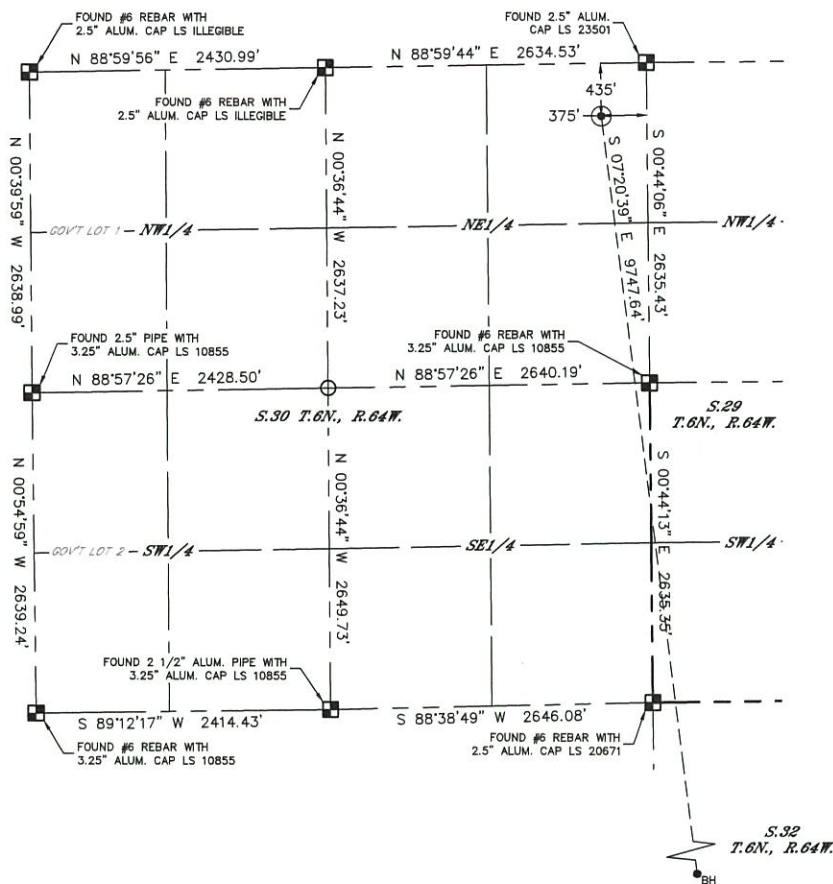 FOUND #6 REBAR WITH
2.5" ALUM. CAP LS ILLEGIBLE
FOUND 2.5" ALUM.
CAP LS 23501
N 88°59'56" E 2430.99'
N 88°59'44" E 2634.53'
FOUND #6 REBAR WITH
2.5" ALUM. CAP LS ILLEGIBLE
435'
375'
N 00°39'59" W 2638.99'
N 00°36'44" W 2637.23'
S 07°20'39" E 9747.64'
S 00°44'06" E 2635.43'
GOV'T LOT 1
NW1/4
NE1/4
NW1/4
FOUND 2.5" PIPE WITH
3.25" ALUM. CAP LS 10855
FOUND #6 REBAR WITH
3.25" ALUM. CAP LS 10855
N 88°57'26" E 2428.50'
N 88°57'26" E 2640.19'
S.30 T.6N., R.64W.
S.29
T.6N., R.64W.
N 00°54'59" W 2639.24'
N 00°36'44" W 2649.73'
S 00°44'13" E 2635.35'
GOV'T LOT 2
SW1/4
SE1/4
SW1/4
FOUND 2 1/2" ALUM. PIPE WITH
3.25" ALUM. CAP LS 10855
S 89°12'17" W 2414.43'
S 88°38'49" W 2646.08'
FOUND #6 REBAR WITH
3.25" ALUM. CAP LS 10855
FOUND #6 REBAR WITH
2.5" ALUM. CAP LS 20671
S.32
T.6N., R.64W.
BH